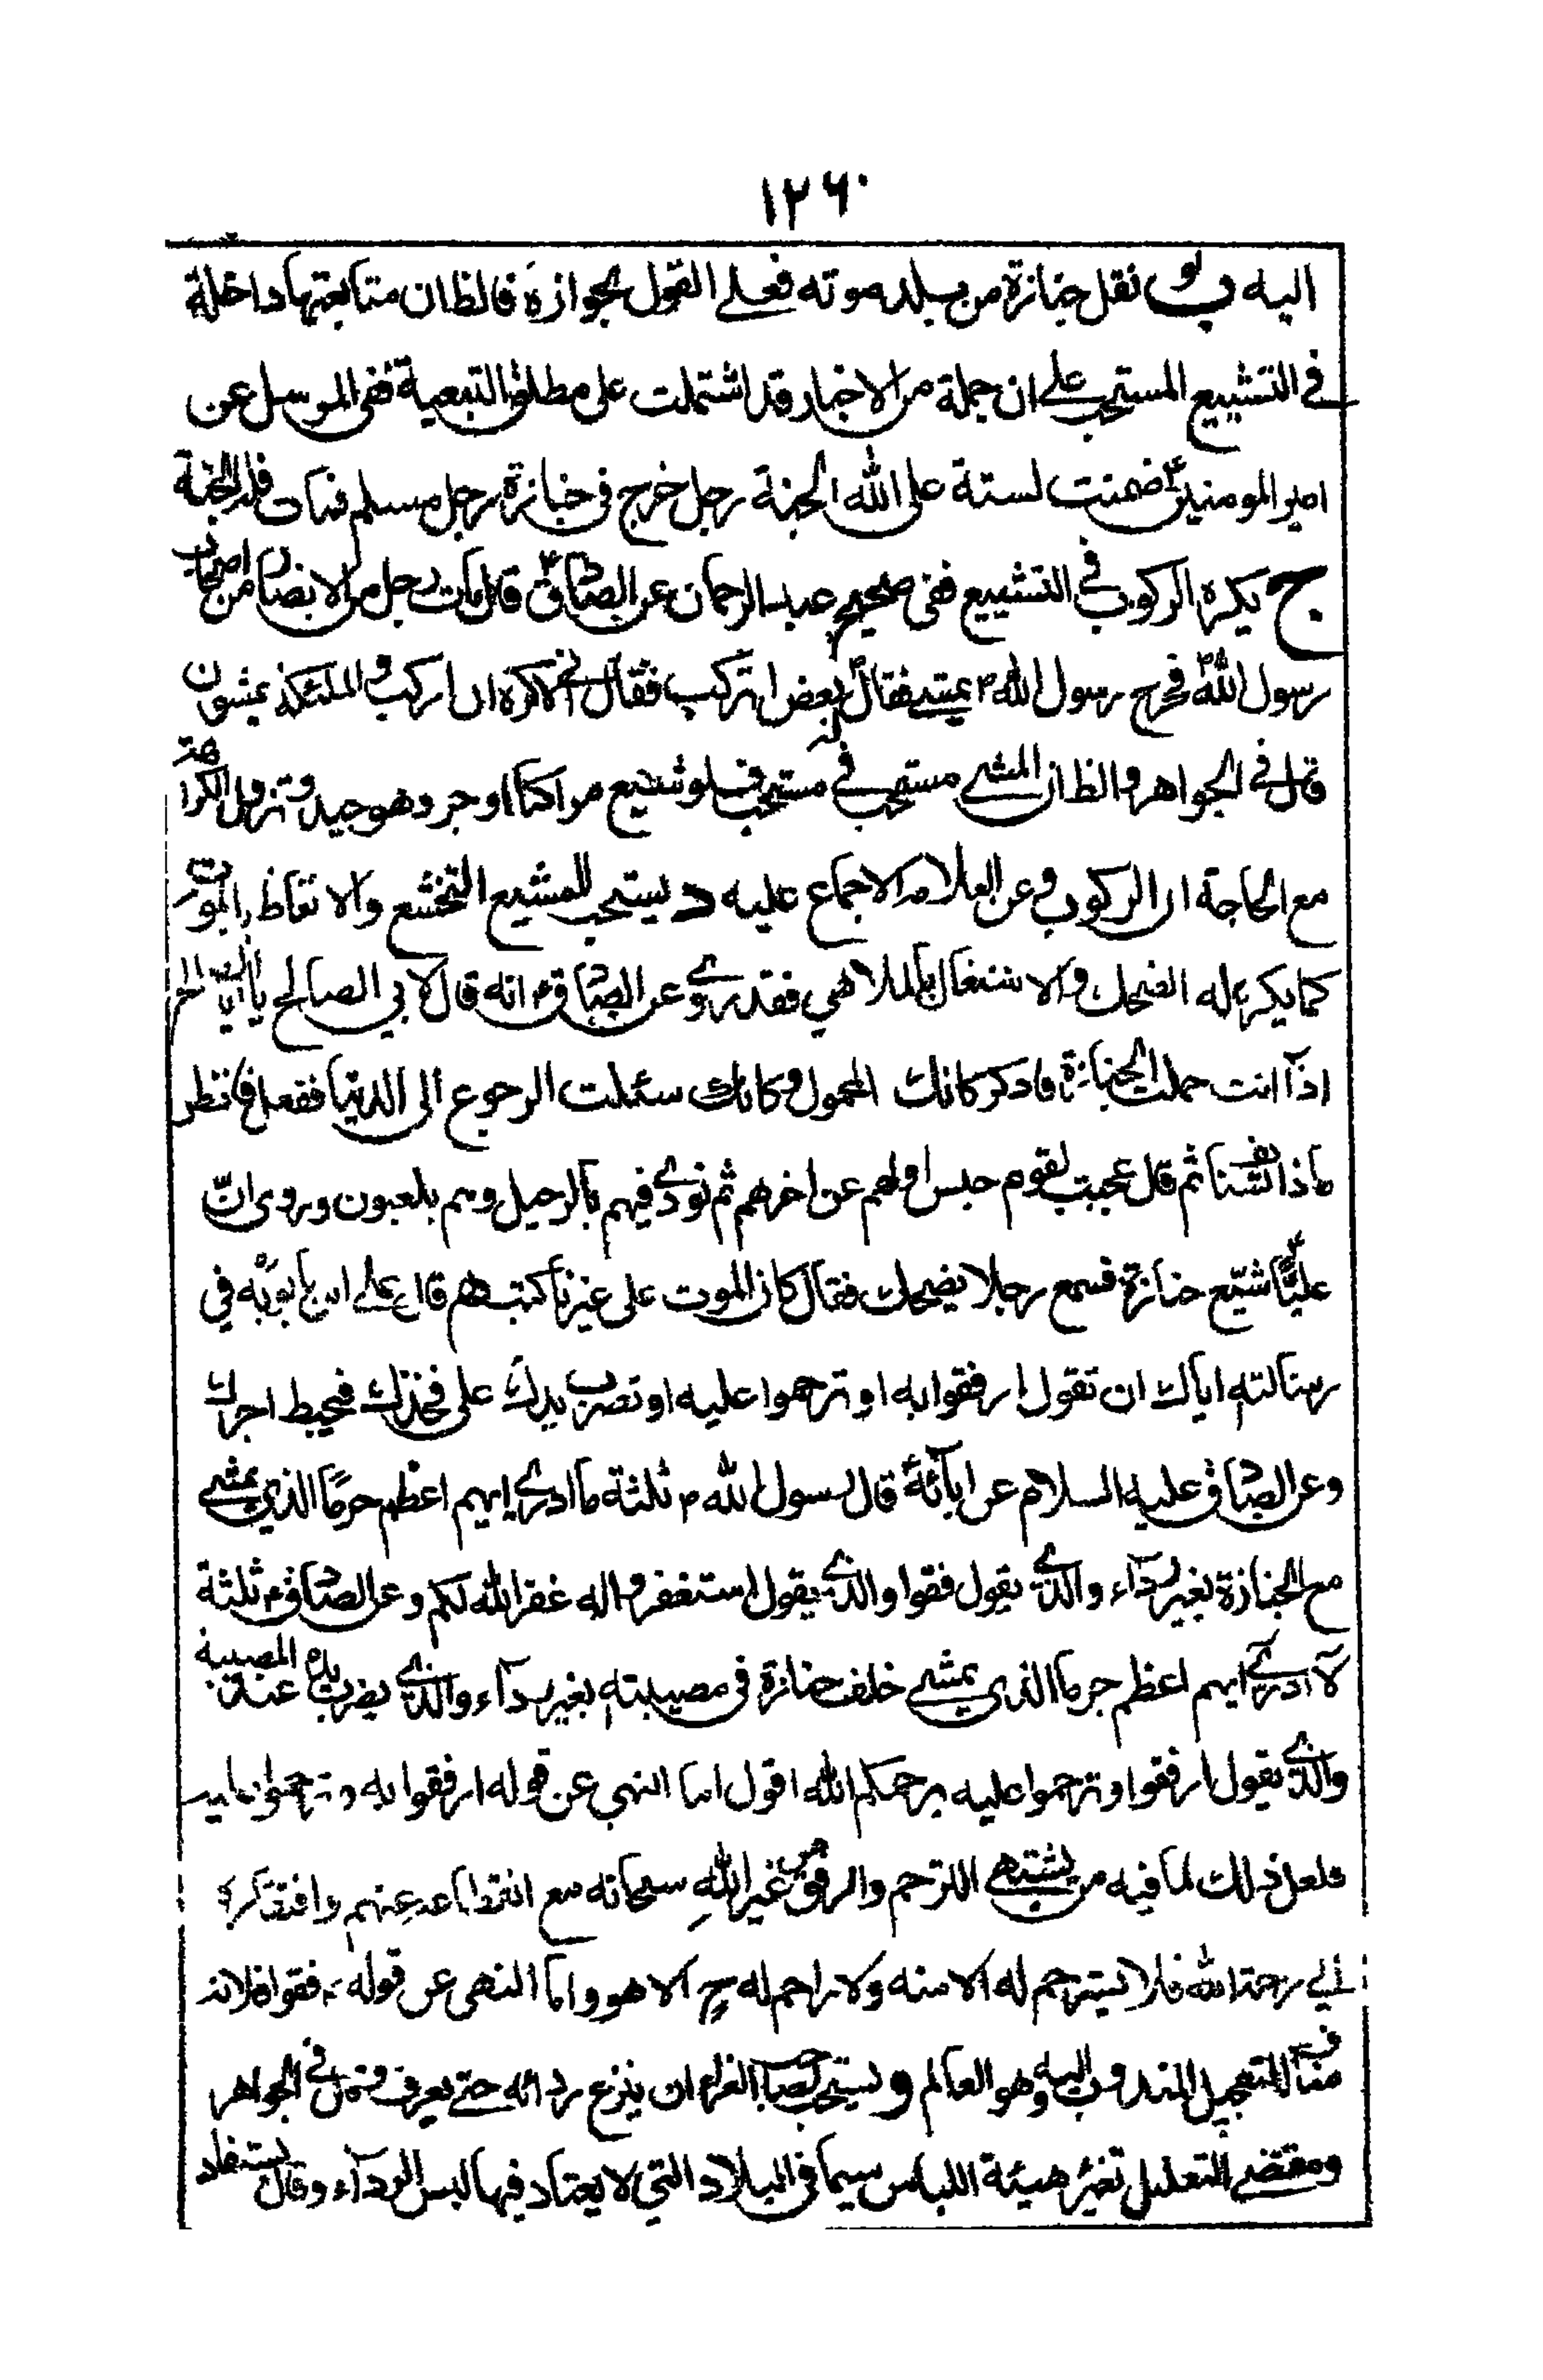 ١٢٦٠
اليه ب لو نقل جنازة من بلد موته فعلى القول بجوازه فالظان متابعتها داخلة
في التشييع المستحب على ان جملة من الاخبار قد اشتملت على مطلق التبعية ففى المرسل عن
امير المومنين ع ضمنت لستة على الله الجنة رجل خرج فى جنازة رجل مسلم فمات فله الجنة
ج يكره الركوب في التشييع ففى صحيح عبد الرحمان عن الصادق ع قال مات رجل من الانصار من اصحاب
رسول الله ص فخرج رسول الله ص يمشى فقال له بعض اتركب فقال انى لاكره ان اركب و الملئكة يمشون
قال في الجواهر و الظان المشى مستحب في مستحب فلو شيع راكبا اوجر وهو جيد و تزول الكراهة
مع الحاجة الى الركوب و عن العلامه الاجماع عليه د يستحب للمشيع التخشع والاتعاظ بالموت
كما يكره له الضحك و الاشتغال بالملاهي فقد روى عن الصادق ع انه قال لابي الصالح يا ابا
اذا انت حملت الجنازة فاذكر كانك المحمول و كانك سئلت الرجوع الى الدنيا ففعل فانظر
ماذا تستانف ثم قال عجبت لقوم حبس اولهم عن اخرهم ثم نودى فيهم بالرحيل وهم يلعبون وروى انّ
عليّا ع شيّع جنازة فسمع رجلا يضحك فقال كان الموت على غيرنا كتب هم قال على ابن بابويه في
رسالته اياك ان تقول ارفقوا به او ترحموا عليه او تضرب يدك على فخذك فيحبط اجرك
وعن الصادق عليه السلام عن ابآئه قال رسول الله ص ثلثة ما ادرى ايهم اعظم جرما الذى يمشى
مع الجنازة بغير ردآء والذى يقول قفوا والذى يقول استغفروا له غفر الله لكم وعن الصادق ع ثلثة
لا ادرى ايهم اعظم جرما الذى يمشى خلف جنازة فى مصيبته بغير ردآء والذى يضرب يده عند المصيبة
والذى يقول ارفقوا وترحموا عليه يرحمكم الله اقول اما النهى عن قوله ارفقوا به و ترحموا عليه
فلعل ذلك لما فيه من الترحم والرفق من غير الله سبحانه مع انقطاعه عنهم وافتقاره
الى رحمة الله فلا يترحم له الا منه ولا راحم له ح الا هو واما النهى عن قوله قفوا فلانه
مناف للتعجيل المندوب اليه وهو العالم و يستحب لصاحب العزاء ان ينزع ردائه حتى يعرف و في الجواهر
ومقتضى التعليل تغير هيئة اللباس سيما فى البلاد التي لا يعتاد فيها لبس الردآء وقال يستفاد